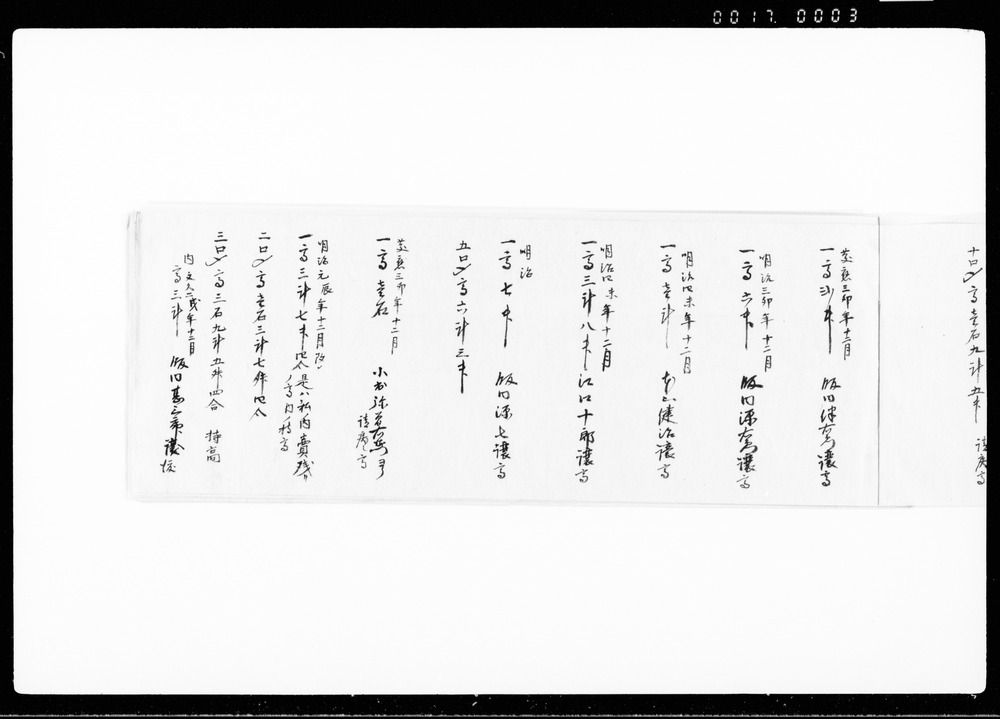 0017.0003
十口〆高壱石九斗五升
請戻高
慶應三卯年十二月
一高弐升
坂口
譲高
明治三卯年十二月
一高六升
坂口源右衛門譲高
明治四未年十二月
一高壱斗
健治譲高
明治四未年十二月
一高三斗八升 江口十郎譲高
明治
一高七升
坂口源七譲高
五口〆高六斗三升
慶應三卯年十二月
一高壱石
請戻高
明治元辰年十二月改
一高三斗七升四合是ハ私内賣残
高内持高
二口〆高壱石三斗七升四合
三口〆高三石九斗五升四合 持高
内文久二戌年十二月
高三斗
坂口甚三郎譲戻